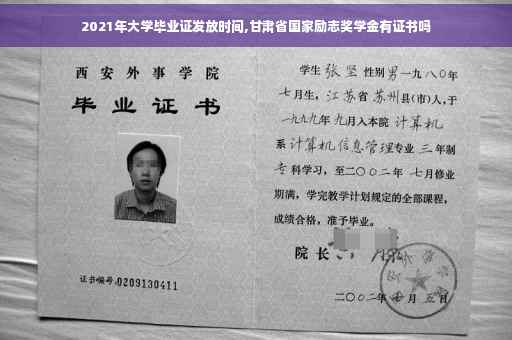 2021年大学毕业证发放时间,甘肃省国家励志奖学金有证书吗
西安外事学院
毕业证书
证书编号:0209130411
学生 张坚 性别 男 一九八〇年
七月生, 江苏省 苏州 县(市)人,于
一九九九年 九月入本院 计算机
系 计算机信息管理 专业 三 年制
专 科学习, 至二〇〇二年 七月修业
期满, 学完教学计划规定的全部课程,
成绩合格, 准予毕业。
院长
二〇〇二年 月五日